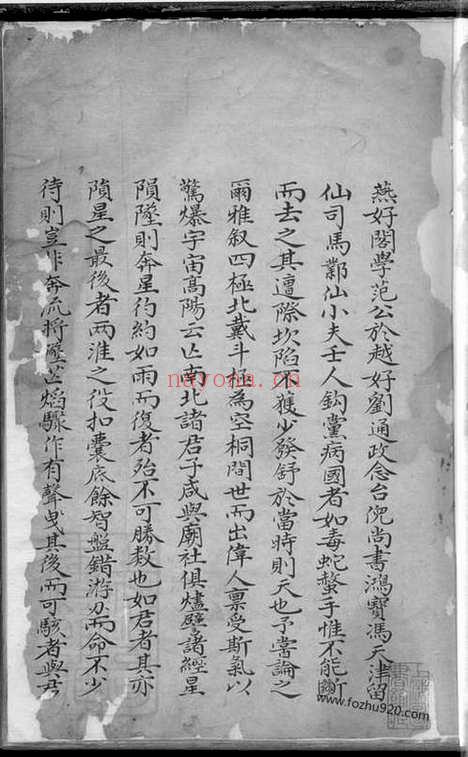 燕好閣學范公於越好劉通政念台倪尚書鴻寶馮天津留
仙司馬鄴仙小夫壬人鈎黨病國者如毒蛇螫手惟不能斷
而去之其遭際坎陷不獲少發舒於當時則天也予嘗論之
爾雅叙四極北戴斗極為空桐間世而出偉人禀受斯氣以
驚爆宇宙高陽云亡南北諸君子咸與廟社俱燼譬諸經星
隕墜則奔星彴約如雨而復者殆不可勝数也如君者其亦
隕星之最後者兩淮之役扣囊底餘智盤錯游刃而命不少
待則豈非奔流
焰騤作有聲曳其後而可駭者與君
nayona.cn
www.fozhu920.com